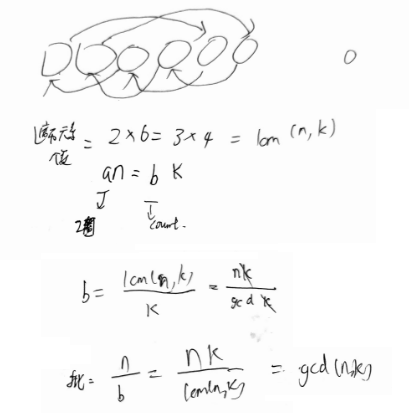 遍历元素个数 = 2 × 6 = 3 × 4 = lcm (n, k)
an = b k
2圈 count.
b = lcm(n, k) / k = nk / gcd k
批 = n / b = nk / lcm(n, k) = gcd(n,k)